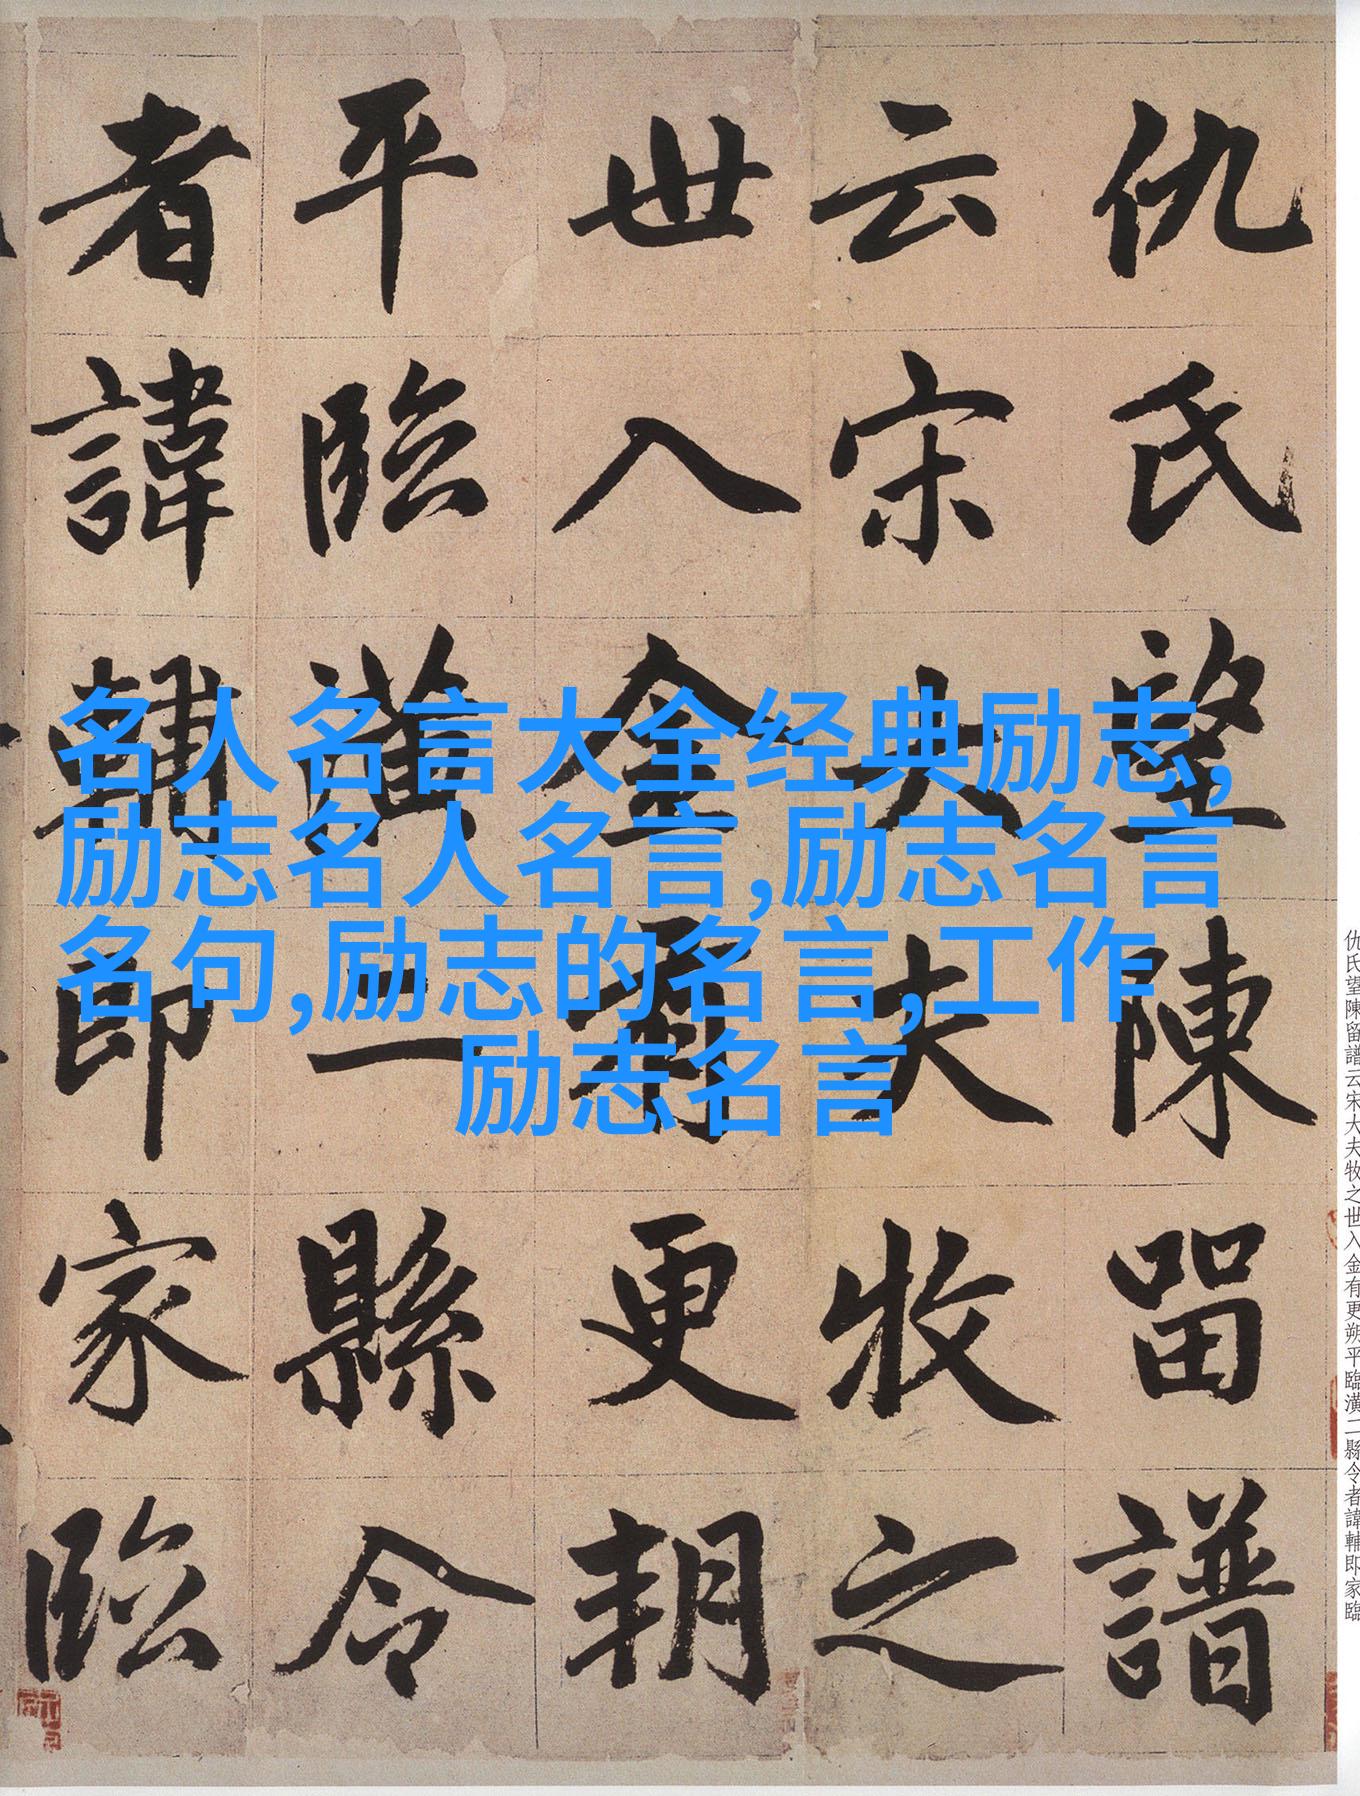 仇氏望陳留譜
云宋大夫牧之
世入金有更朔
平臨潢二縣令
者諱輔即家臨
名人名言大全经典励志,
励志名人名言,励志名言
名句,励志的名言,工作
励志名言
仇氏望陳留譜云宋大夫牧之世入金有更朔平臨潢二縣令者諱輔即家臨